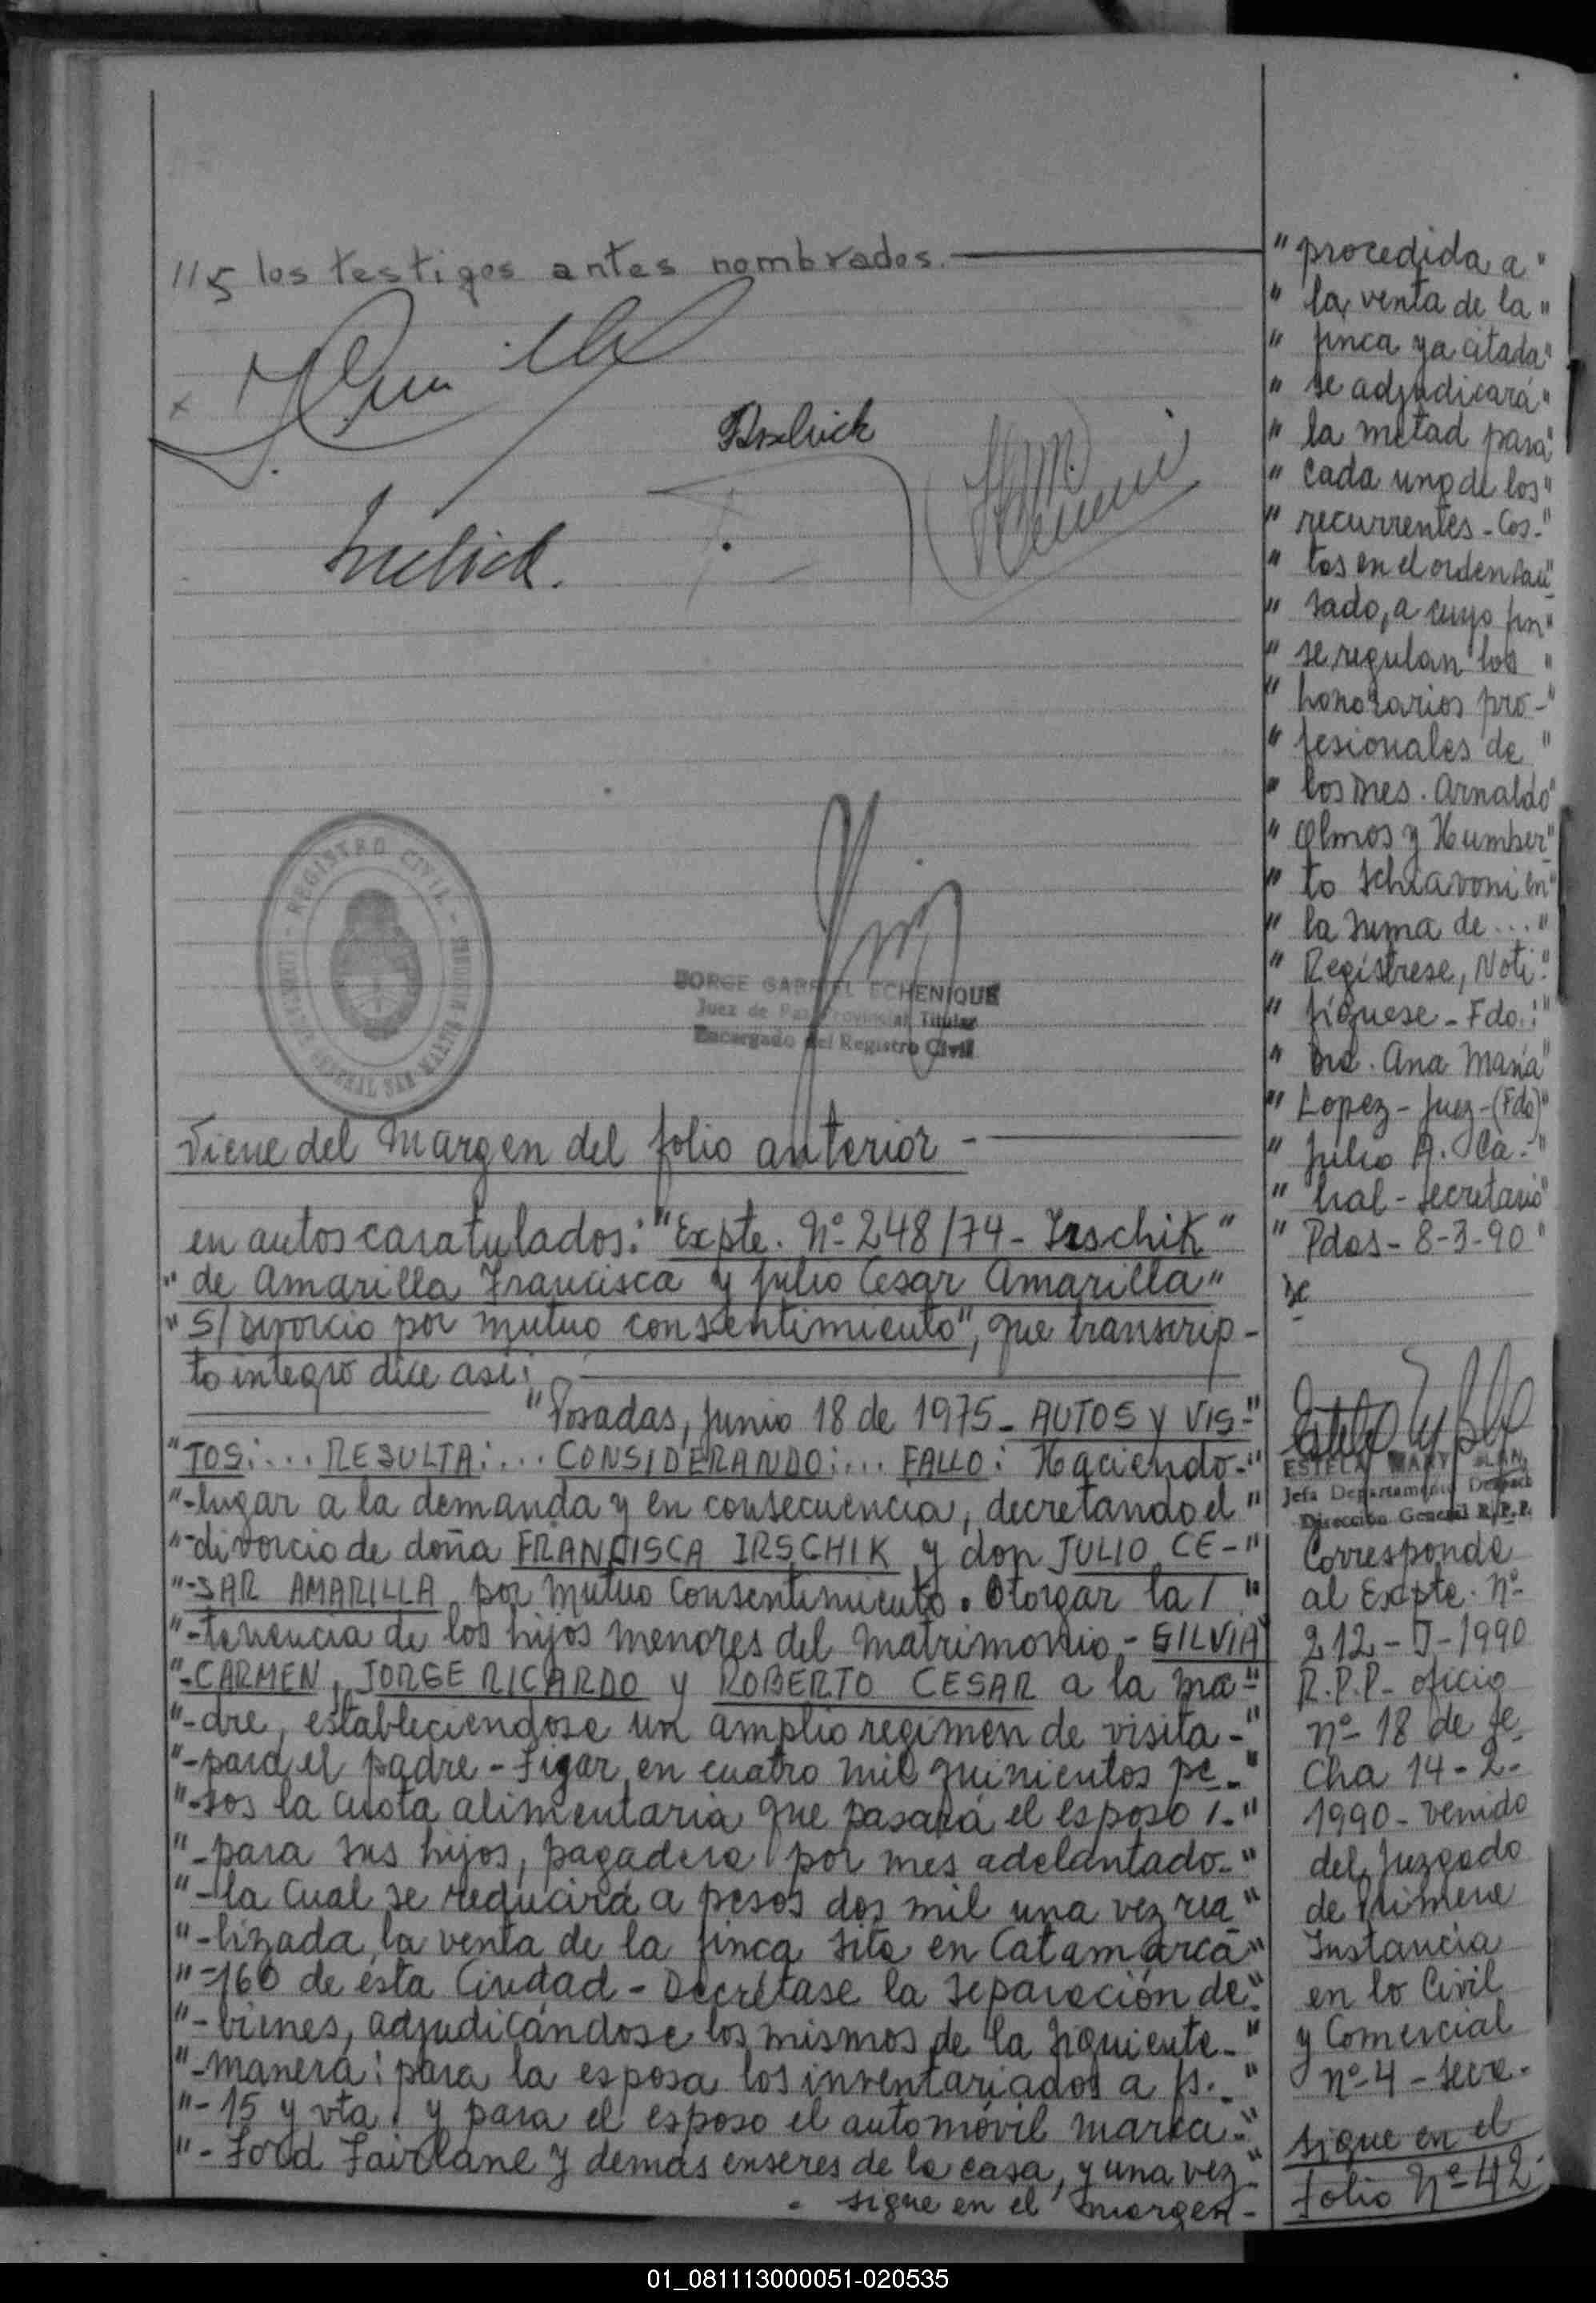 //s los testigos antes nombrados.
REGISTRO CIVIL
JORGE GABRIEL ECHENIQUE
Juez de Paz Provincial Titular
Encargado del Registro Civil
Viene del Margen del folio anterior -
en autos caratulados: "Expte. Nº 248/74 - Irschik"
"de Amarilla Francisca y Julio Cesar Amarilla"
"S/ Divorcio por mutuo consentimiento", que transcrip-
to integro dice asi:
"Posadas, Junio 18 de 1975 - AUTOS Y VIS-"
"TOS: ... RESULTA: ... CONSIDERANDO: ... FALLO: Haciendo-"
"-lugar a la demanda y en consecuencia, decretando el"
"-divorcio de doña FRANCISCA IRSCHIK y don JULIO CE-"
"-SAR AMARILLA por mutuo consentimiento. Otorgar la /"
"-tenencia de los hijos menores del matrimonio - SILVIA"
"-CARMEN, JORGE RICARDO y ROBERTO CESAR a la ma-"
"-dre, estableciendose un amplio regimen de visita-"
"-para el padre - Fijar en cuatro mil quinientos pe-"
"-sos la cuota alimentaria que pasará el esposo /-"
"-para sus hijos, pagadera por mes adelantado-"
"-la cual se reducirá a pesos dos mil una vez rea"
"-lizada la venta de la finca sita en Catamarca"
"-160 de ésta Ciudad - Decrétase la separación de"
"-bienes, adjudicándose los mismos de la siguiente-"
"-manera: para la esposa los inventariados a fs.-"
"-15 y vta. y para el esposo el automóvil marca-"
"-Ford Fairlane y demás enseres de la casa, y una vez"
sigue en el margen-
"procedida a"
"la venta de la"
"finca ya citada"
"se adjudicará"
"la mitad para"
"cada uno de los"
"recurrentes - Cos-"
"tas en el orden cau"
"sado, a cuyo fin"
"se regulan los"
"honorarios pro-"
"fesionales de"
"los Dres. Arnaldo"
"Olmos y Humber"
"to Schiavoni en"
"la suma de ..."
"Regístrese, Noti"
"fíquese - Fdo.:"
"Dra. Ana María"
"Lopez - Juez - (Fdo)"
"Julio A. Ca-"
"bral - Secretario"
"Pdas - 8-3-90"
ESTELA MARY
Jefa Departamento Despacho
Dirección General R.P.P.
Corresponde
al Expte. Nº
212 - I - 1990
R.P.P - oficio
nº 18 de fe
cha 14-2-
1990 - venido
del Juzgado
de Primera
Instancia
en lo Civil
y Comercial
nº 4 - Secre-
sigue en el
folio Nº 42-
01_081113000051-020535